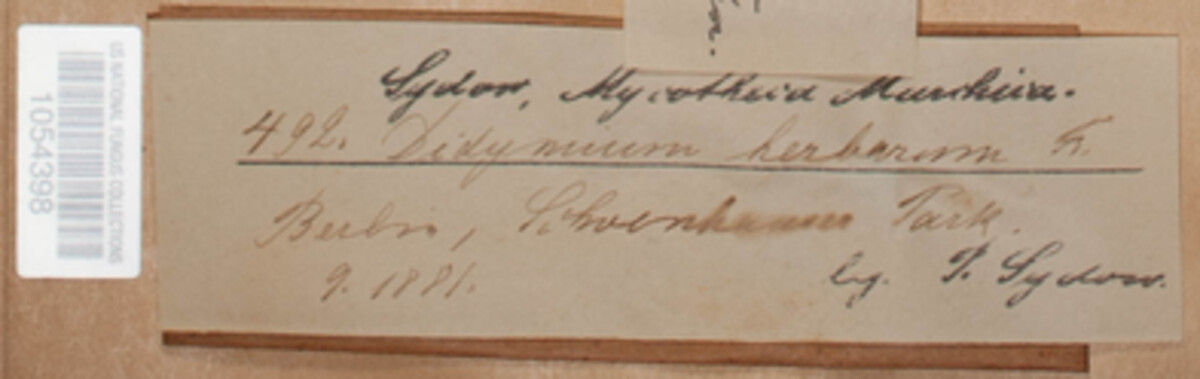 US NATIONAL FUNGUS COLLECTIONS
1054398
Sydow, Mycotheca Marchica.
492. Didymium herbarum Fr.
Berlin, Schoenhauser Park.
9. 1881.
leg. P. Sydow.